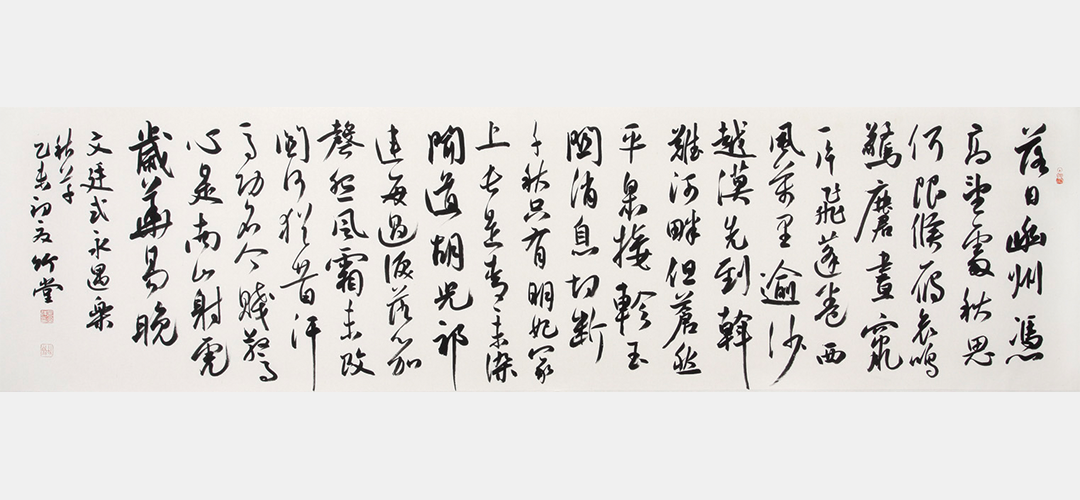 落日幽州憑
高望處秋思
何限候雁哀鳴
驚麏晝竄
一片飛蓬卷西
風萬里逾沙
越漠先到斡
難河畔但蒼然
平皋接軫玉
關消息初斷
千秋只有明妃冢
上長是青青未染
聞道胡兒祁
連每過淚落笳
聲怨風霜未改
關河猶昔汗
馬功名今賤驚
心是南山射虎
歲華易晚
文廷式永遇樂
秋草
乙未初夏竹堂